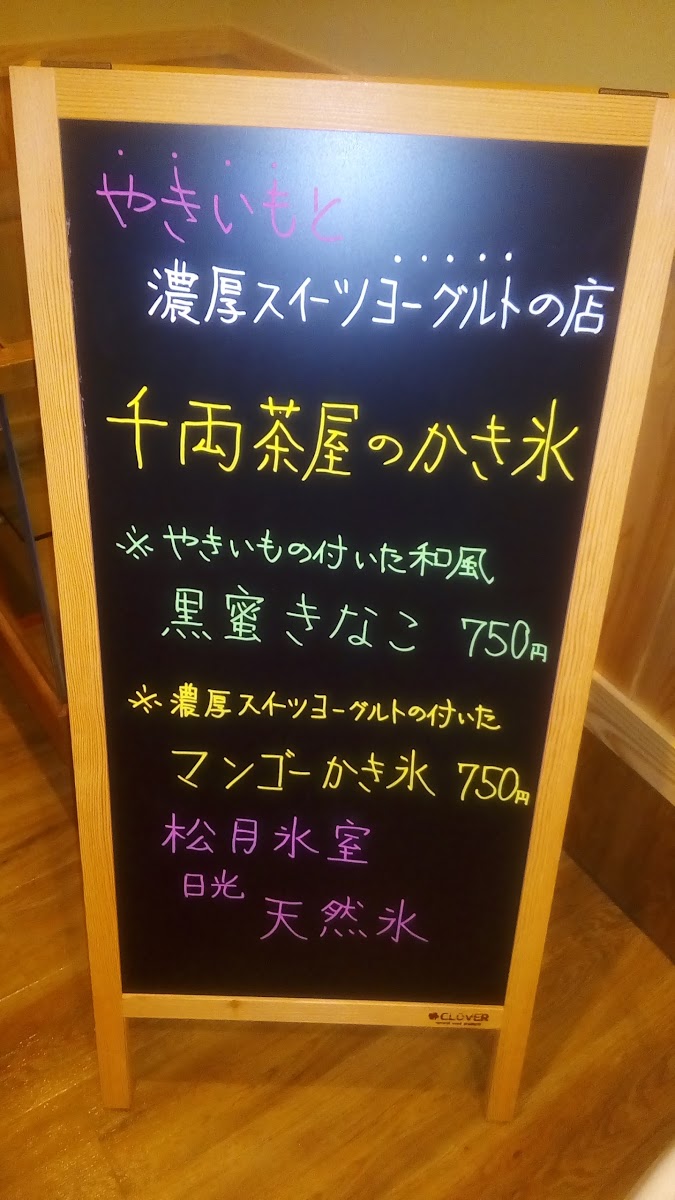 やきいもと
濃厚スイーツヨーグルトの店
千両茶屋のかき氷
※やきいもの付いた和風
黒蜜きなこ 750円
※濃厚スイーツヨーグルトの付いた
マンゴーかき氷 750円
松月氷室
日光
天然氷
CLOVER